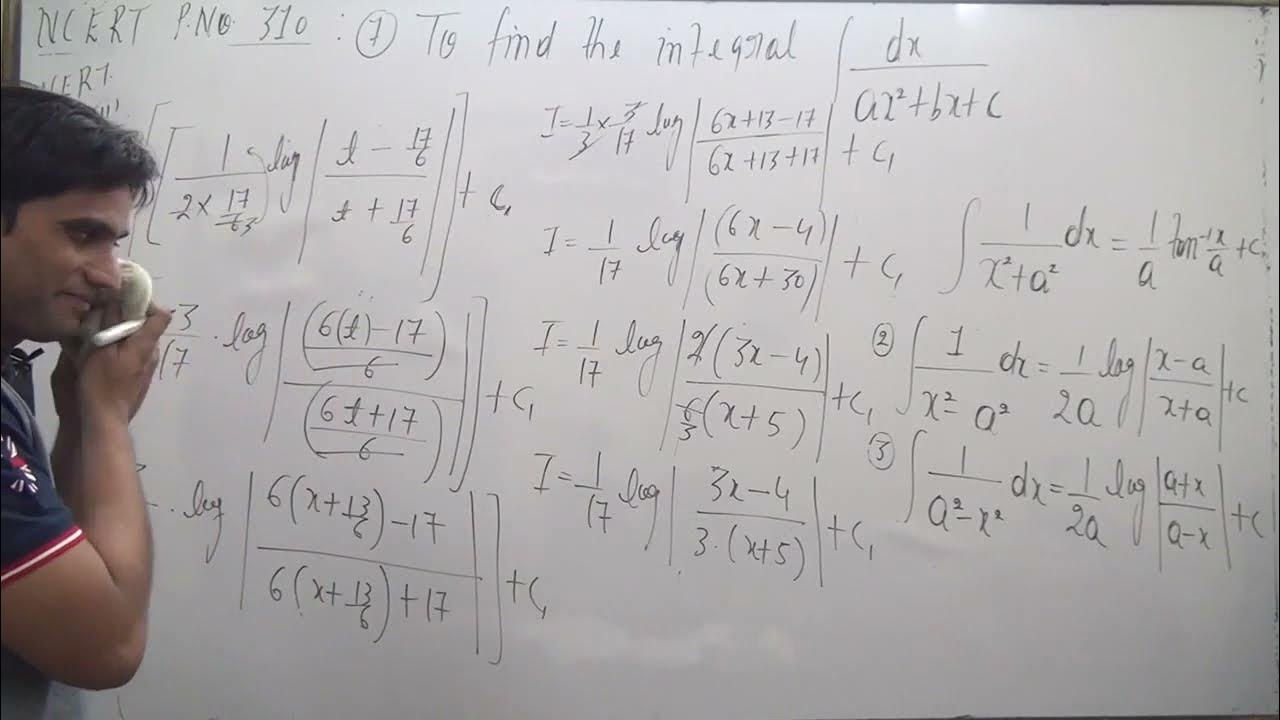 NCERT P.NO 310 : ⑦ To find the integral ∫ dx / (ax² + bx + c)
[ 1 / (2 × 17/6 3) log | (t − 17/6) / (t + 17/6) | ] + C₁
3/17 · log | ((6(t) − 17)/6) / ((6t + 17)/6) | ] + C₁
· log | (6(x + 13/6) − 17) / (6(x + 13/6) + 17) | ] + C₁
I = 1/3 × 3/17 log | (6x + 13 − 17) / (6x + 13 + 17) | + C₁
I = 1/17 log | (6x − 4) / (6x + 30) | + C₁
I = 1/17 log | 2(3x − 4) / 6 3 (x + 5) | + C₁
I = 1/17 log | (3x − 4) / 3·(x + 5) | + C₁
∫ 1 / (x² + a²) dx = 1/a tan⁻¹ x/a + C
② ∫ 1 / (x² − a²) dx = 1/2a log | (x − a) / (x + a) | + C
③ ∫ 1 / (a² − x²) dx = 1/2a log | (a + x) / (a − x) | + C